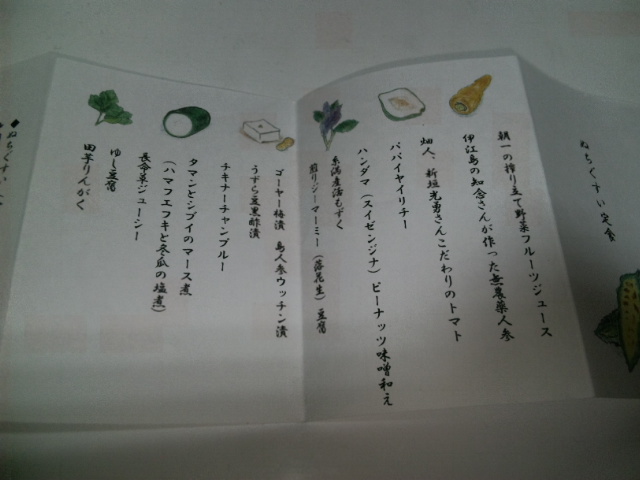 ぬちぐすい定食
朝一の搾り立て野菜フルーツジュース
伊江島の知念さんが作った無農薬人参
畑人、新垣光勇さんこだわりのトマト
パパイヤイリチー
ハンダマ(スイゼンジナ)ピーナッツ味噌和え
糸満産海もずく
煎りジーマーミー(落花生)豆腐
ゴーヤー梅漬 島人参ウッチン漬
うずら豆黒酢漬
チキナーチャンプルー
タマンとシブイのマース煮
(ハマフエフキと冬瓜の塩煮)
長命草ジューシー
ゆし豆腐
田芋りんがく